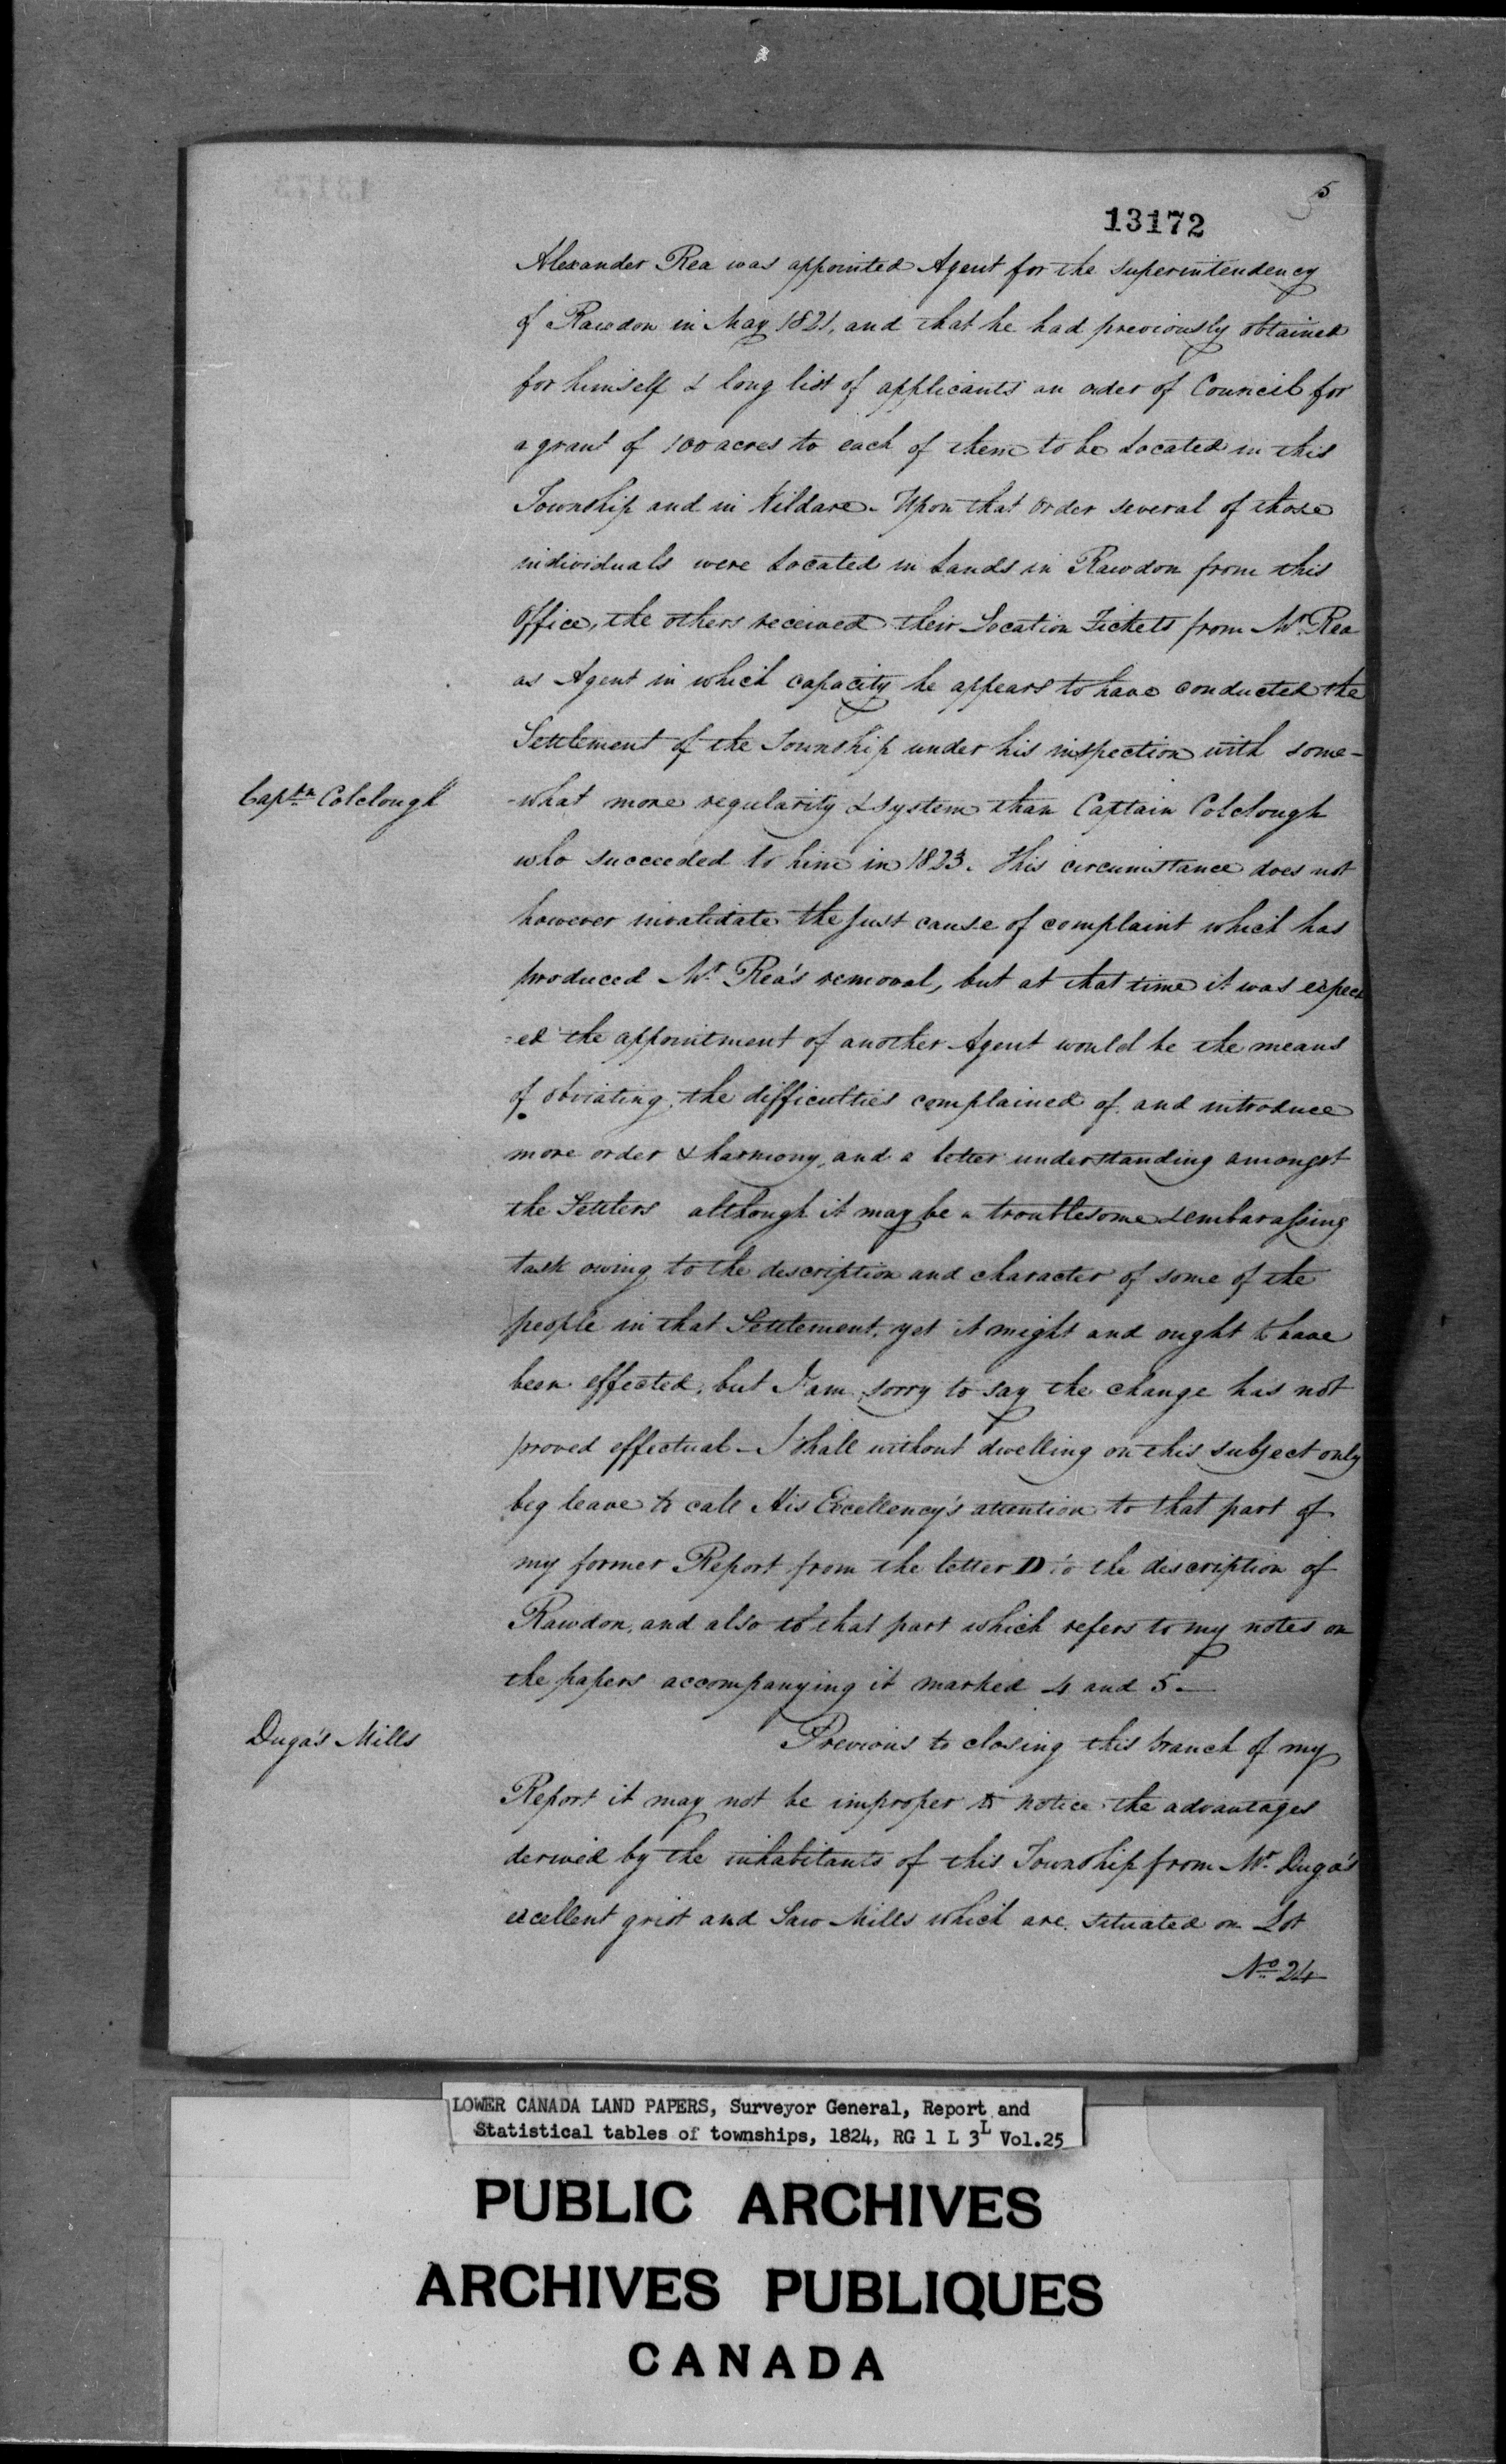 5
13172
Alexander Rea was appointed Agent for the superintendency
of Rawdon in May 1821, and that he had previously obtained
for himself & long list of applicants an order of Council for
a grant of 100 acres to each of them to be Located in this
Township and in Kildare - Upon that order several of those
individuals were Located in Lands in Rawdon from this
Office, the others received their Location Tickets from Mr. Rea
as Agent in which capacity he appears to have conducted the
Settlement of the Township under his inspection with some-
Captn Colclough
-what more regularity & system than Captain Colclough
who succeeded to him in 1823. This circumstance does not
however invalidate the just cause of complaint which has
produced Mr. Rea's removal, but at that time it was expect
=ed the appointment of another Agent would be the means
of obviating the difficulties complained of and introduce
more order & harmony, and a better understanding amongst
the Settlers although it may be a troublesome & embarassing
task owing to the description and character of some of the
people in that Settlement, yet it might and ought to have
been effected, but I am sorry to say the change has not
proved effectual - I shall without dwelling on this subject only
beg leave to call His Excellency's attention to that part of
my former Report from the letter D to the description of
Rawdon, and also to that part which refers to my notes on
the papers accompanying it marked 4 and 5 -
Duga's Mills
Previous to closing this branch of my
Report it may not be improper to notice the advantages
derived by the inhabitants of this Township from Mr. Duga's
excellent grist and Saw Mills which are situated on Lot
No. 24
LOWER CANADA LAND PAPERS, Surveyor General, Report and
Statistical tables of townships, 1824, RG 1 L 3L Vol.25
PUBLIC ARCHIVES
ARCHIVES PUBLIQUES
CANADA